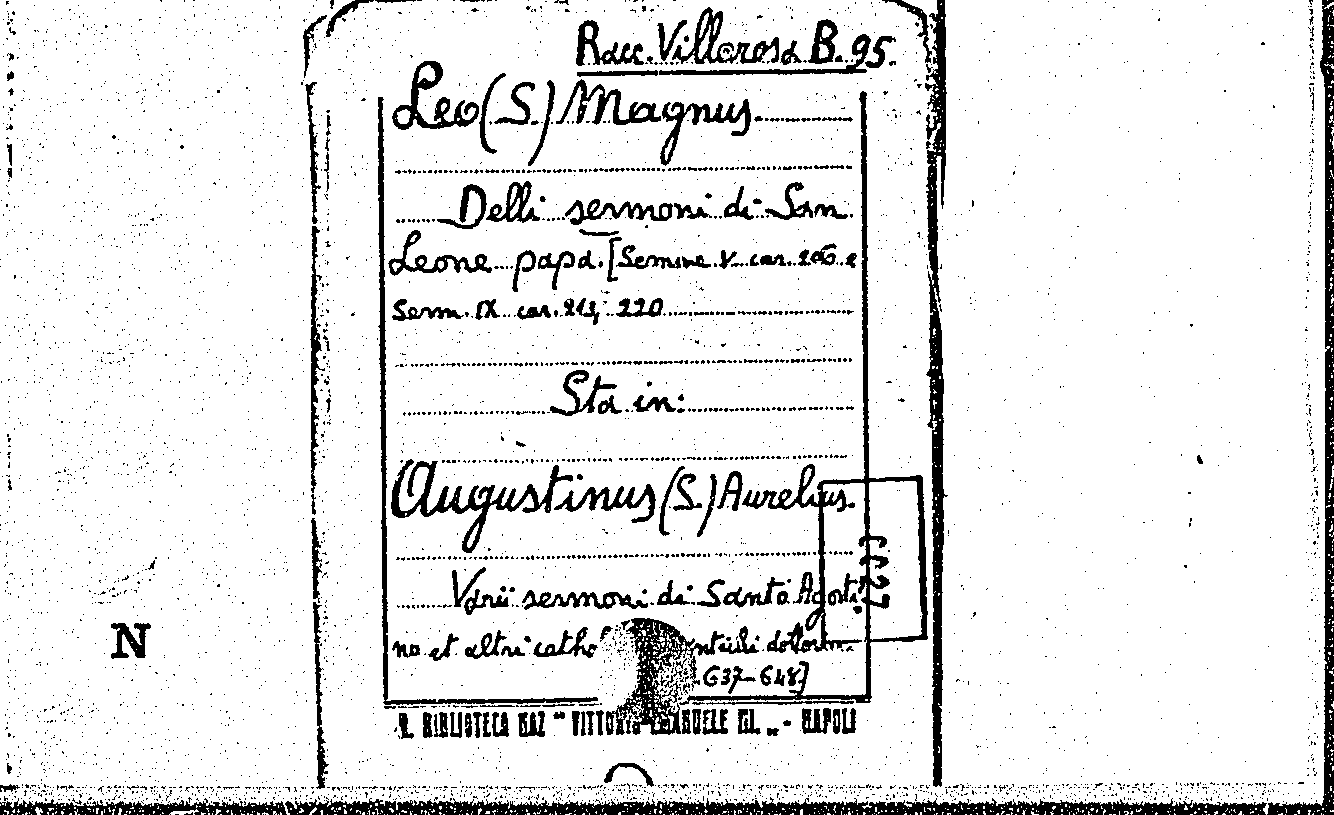 Racc. Villarosa B. 95.
Leo (S.) Magnus.
Delli sermoni di San
Leone papa. [Sermone V car. 206 e
Serm. IX car. 213, 220
Sta in:
Augustinus (S.) Aurelius.
Varii sermoni di Santo Agosti
no et altri catho
dottori
. 637-648]
R. BIBLIOTECA NAZ " VITTORIO EMANUELE III. „ - NAPOLI
N